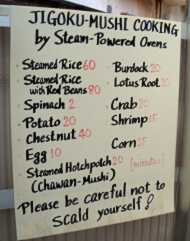 JIGOKU-MUSHI COOKING
by Steam-Powered Ovens
Steamed Rice 60
Steamed Rice
with Red Beans 80
Spinach 2
Potato 20
Chestnut 40
Egg 10
Steamed Hotchpotch 20 [minutes]
(Chawan-Mushi)
Burdock 20
Lotus Root 20
Crab 20
Shrimp 15
Corn 25
Please be careful not to
scald yourself!